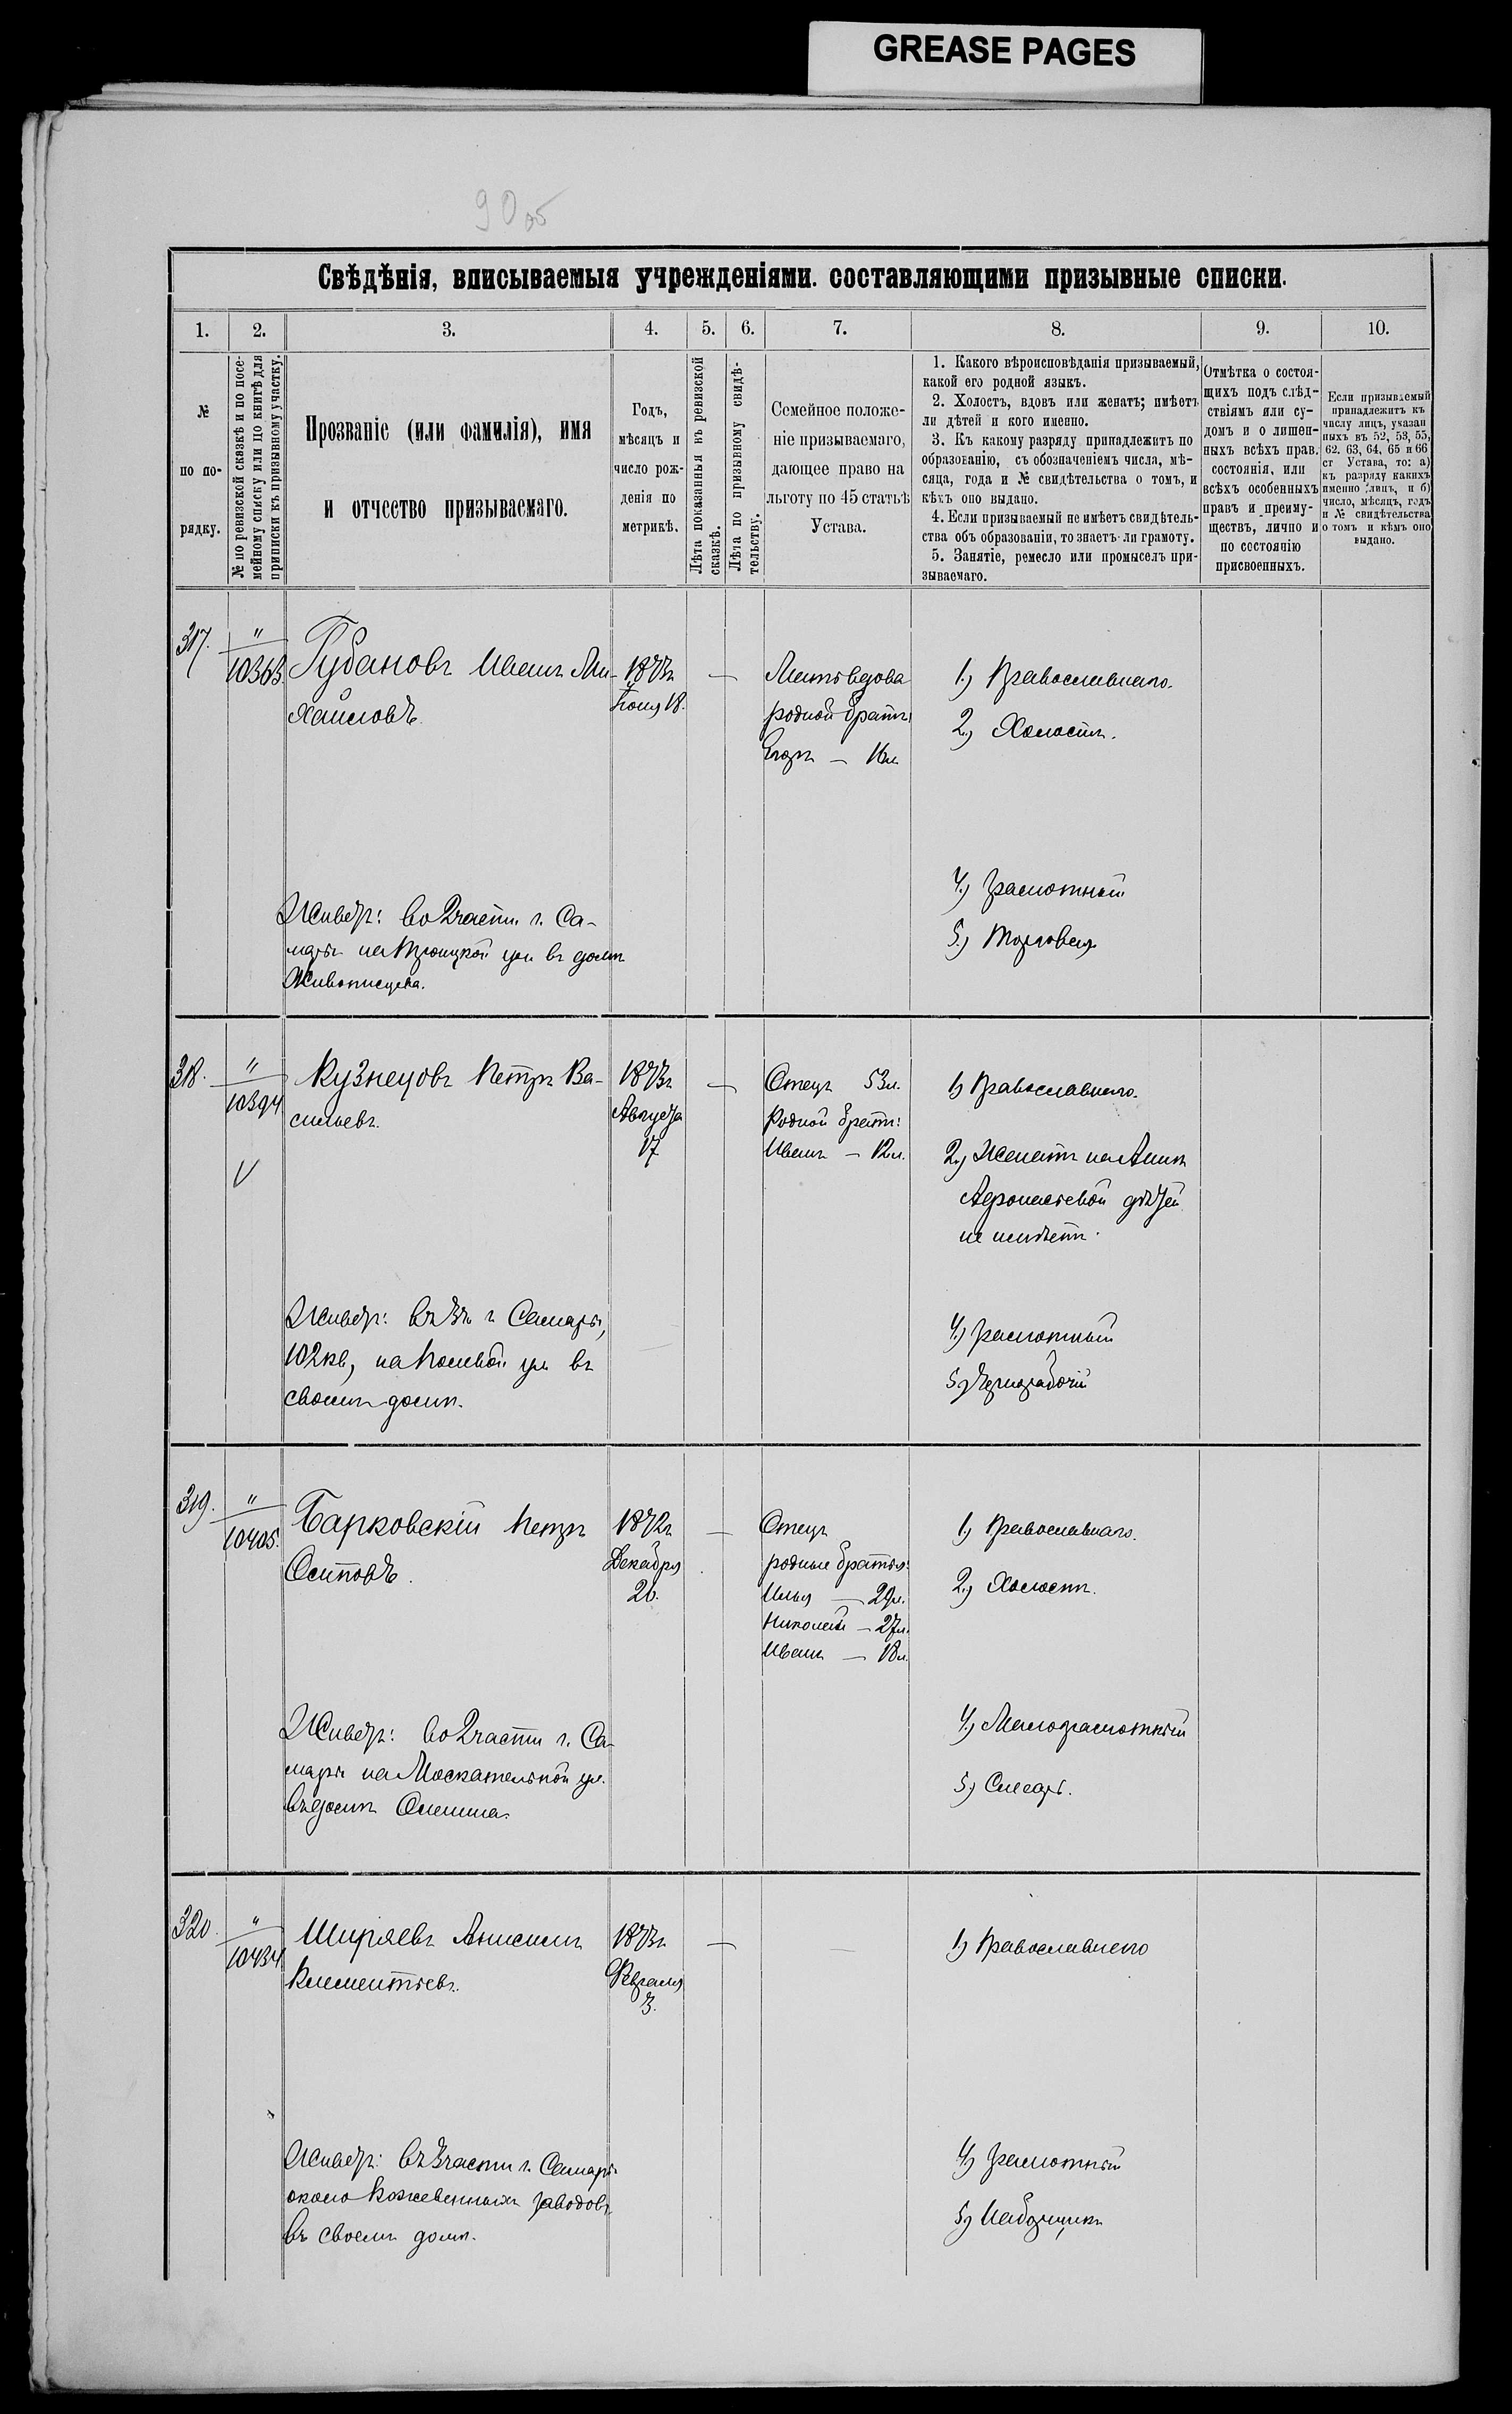 GREASE PAGES
90 об
Свѣдѣнія, вписываемыя учрежденіями. составляющими призывные списки.
1. 2. 3. 4. 5. 6. 7. 8. 9. 10.
№
по по-
рядку.
№ по ревизской сказкѣ и по посе-
мейному списку или по книгѣ для
приписки къ призывному участку.
Прозваніе (или фамилія), имя
и отчество призываемаго.
Годъ,
мѣсяцъ и
число рож-
денія по
метрикѣ.
Лѣта показанныя въ ревизской
сказкѣ.
Лѣта по призывному свидѣ-
тельству.
Семейное положе-
ніе призываемаго,
дающее право на
льготу по 45 статьѣ
Устава.
1. Какого вѣроисповѣданія призываемый,
какой его родной языкъ.
2. Холостъ, вдовъ или женатъ; имѣетъ
ли дѣтей и кого именно.
3. Къ какому разряду принадлежитъ по
образованію, съ обозначеніемъ числа, мѣ-
сяца, года и № свидѣтельства о томъ, и
кѣмъ оно выдано.
4. Если призываемый не имѣетъ свидѣтель-
ства объ образованіи, то знаетъ ли грамоту.
5. Занятіе, ремесло или промыселъ при-
зываемаго.
Отмѣтка о состоя-
щихъ подъ слѣд-
ствіямъ или су-
домъ и о лишен-
ныхъ всѣхъ прав.
состоянія, или
всѣхъ особенныхъ
правъ и преиму-
ществъ, лично и
по состоянію
присвоенныхъ.
Если призываемый
принадлежитъ къ
числу лицъ, указан
ныхъ въ 52, 53, 55,
62. 63, 64, 65 и 66
ст Устава, то: а)
къ разряду какихъ
именно лицъ, и б)
число, мѣсяцъ, годъ
и № свидѣтельства
о томъ и кѣмъ оно
выдано.
317.
"
10363.
Губановъ Иванъ Ми-
хайловъ.
1873г
Іюня 18.
—
родной братъ
Егоръ — 16л
1.) Православнаго.
2.) Холостъ.
4.) Грамотный
5.) Торговец
Живетъ: во 2 части г. Са-
мары на Троицкой ул въ домѣ
Живописцева.
318.
"
10394
V
Кузнецовъ Петръ Ва-
сильевъ.
1873г
Августа
17
—
Отецъ 53л.
Родной братъ:
Иванъ — 12л.
1) Православнаго.
2.) Женатъ на Аннѣ
дѣтей
не имѣетъ.
4.) Грамотный
5.) Чернорабочій
Живетъ: въ 3ч г Самары,
102 кв, на Полевой ул въ
своемъ домѣ.
319.
"
10405.
Барковскій Петръ
Осиповъ.
1872г
Декабря
20.
—
Отецъ
родные братья:
Илья — 29л.
Николай — 27л.
Иванъ — 18л.
1) Православнаго.
2.) Холостъ.
4.) Малограмотный
5.) Слесарь.
Живетъ: во 2 части г. Са-
мары на Москательной ул.
въ домѣ
320.
"
10434
Ширяевъ Анисимъ
Клементьевъ.
1873г
Февраля
3.
—
—
1.) Православнаго
4) Грамотный
5) Наборщикъ
Живетъ: въ 3 части г. Самары
около Кожевенныхъ заводовъ
въ своемъ домѣ.